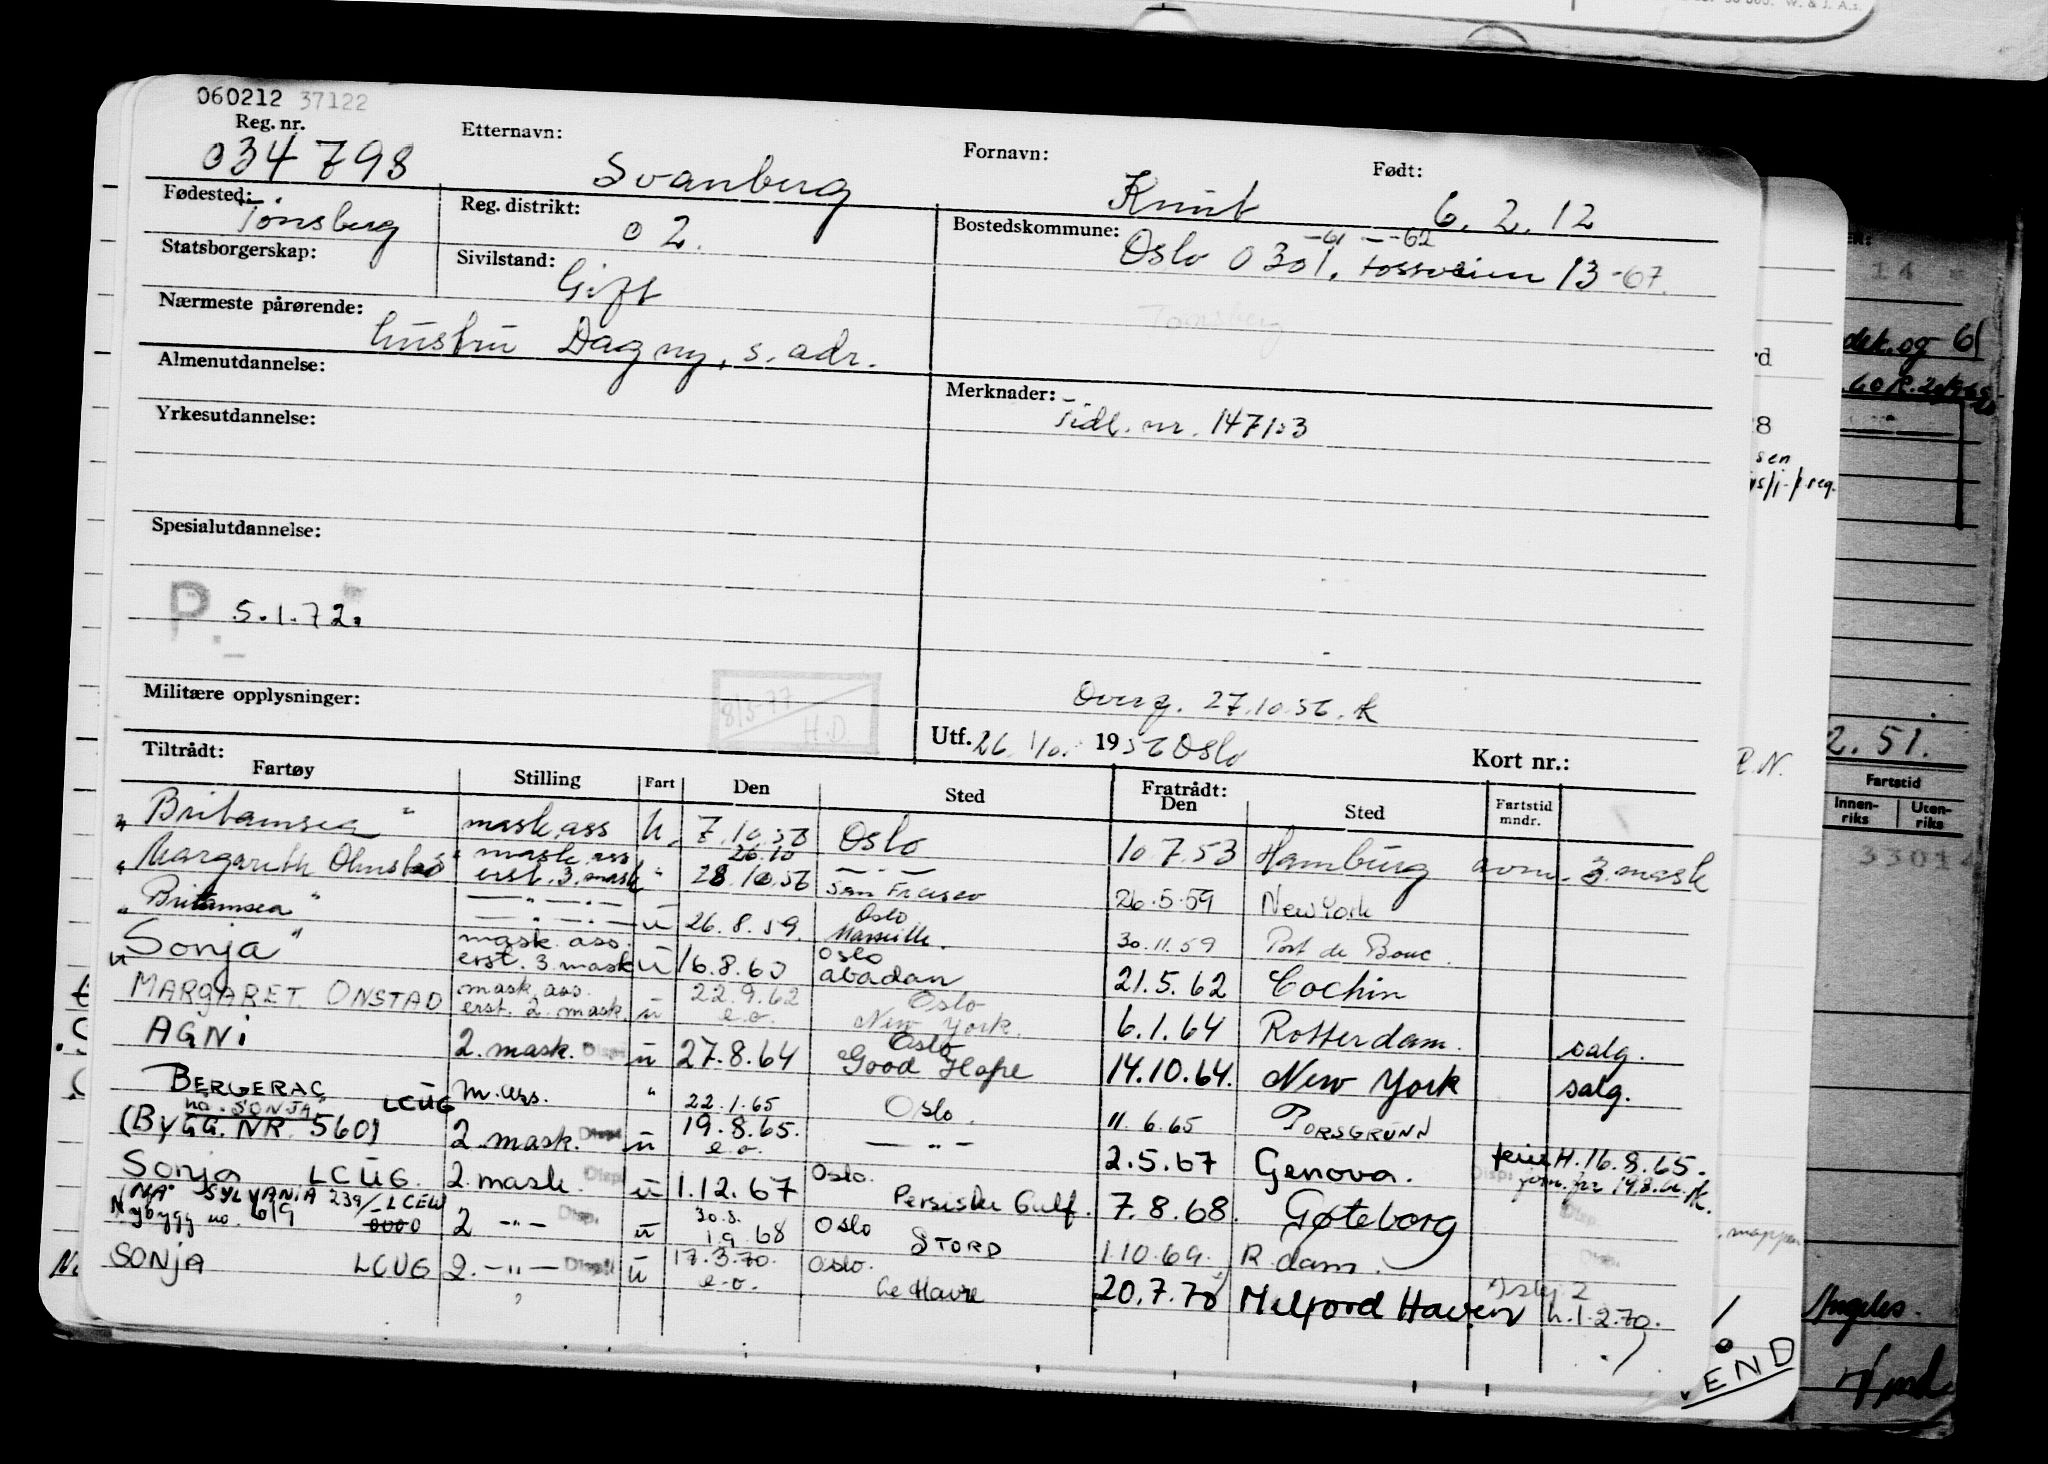 060212 37122
Reg. nr.
034798
Etternavn:
Svanberg
Fornavn:
Knut
Født:
6.2.12
Fødested:
Tønsberg
Reg. distrikt:
02.
Bostedskommune:
-61 - -62
Oslo 0301, 13 -67.
Tønsberg
Statsborgerskap:
Sivilstand:
Gift
Nærmeste pårørende:
hustru Dagny, s. adr.
Almenutdannelse:
Merknader:
Tidl. nr. 147123
Yrkesutdannelse:
Spesialutdannelse:
P. 5.1.72.
Militære opplysninger:
8/5-77
H.D.
Overf. 27.10.56. K
Utf. 26/10. 1956 Oslo
Kort nr.:
Tiltrådt:
Fartøy Stilling Fart Den Sted Fratrådt: Den Sted Fartstid mndr.
"Britamsea" mask. ass u. 7.10.56 Oslo 10.7.53 Hamburg avm. 3. mask
26.10
"Margareth Onstad" mask. ass erst. 3. mask " 28.10.56 San Francisco 26.5.59 New York
"Britamsea" u 26.8.59. Oslo Marseille. 30.11.59 Port de Bouc.
"Sonja" mask. ass. erst. 3. mask u 16.8.60 Oslo abadan 21.5.62 Cochin
MARGARET ONSTAD mask. ass. erst. 2. mask. u 22.9.62 e.o. Oslo New York. 6.1.64 Rotterdam. salg.
AGNI 2. mask. Disp. u 27.8.64 Oslo Good Hope 14.10.64. New York salg.
BERGERAC m. ass. " 22.1.65 Oslo. 11.6.65 PORSGRUNN
na. "SONJA" LCUG
(BYGG. NR. 560) 2. mask. Disp. u 19.8.65. e.o. — " — 2.5.67 Genova. ferie H. 16.8.65.
Sonja LCUG. 2. mask. Disp. u 1.12.67 Oslo. Persiske Gulf. 7.8.68. Gøteborg
NA" SYLVANIA 239/LCEW
Nybygg no. 619 2 -"- Disp. u 30.8. 1.9 68 Oslo STORD 1.10.69. R.dam.
SONJA LCUG 2. -"- u 17.3.70. e.o. Oslo. Le Havre 20.7.70 Milford Haven h. 1.2.70.
.END
14
dek. og 61
rd
8
sen
2.51.
R.N.
Fartstid
Innen-
riks
Uten-
riks
33014
mappen
Angeles.